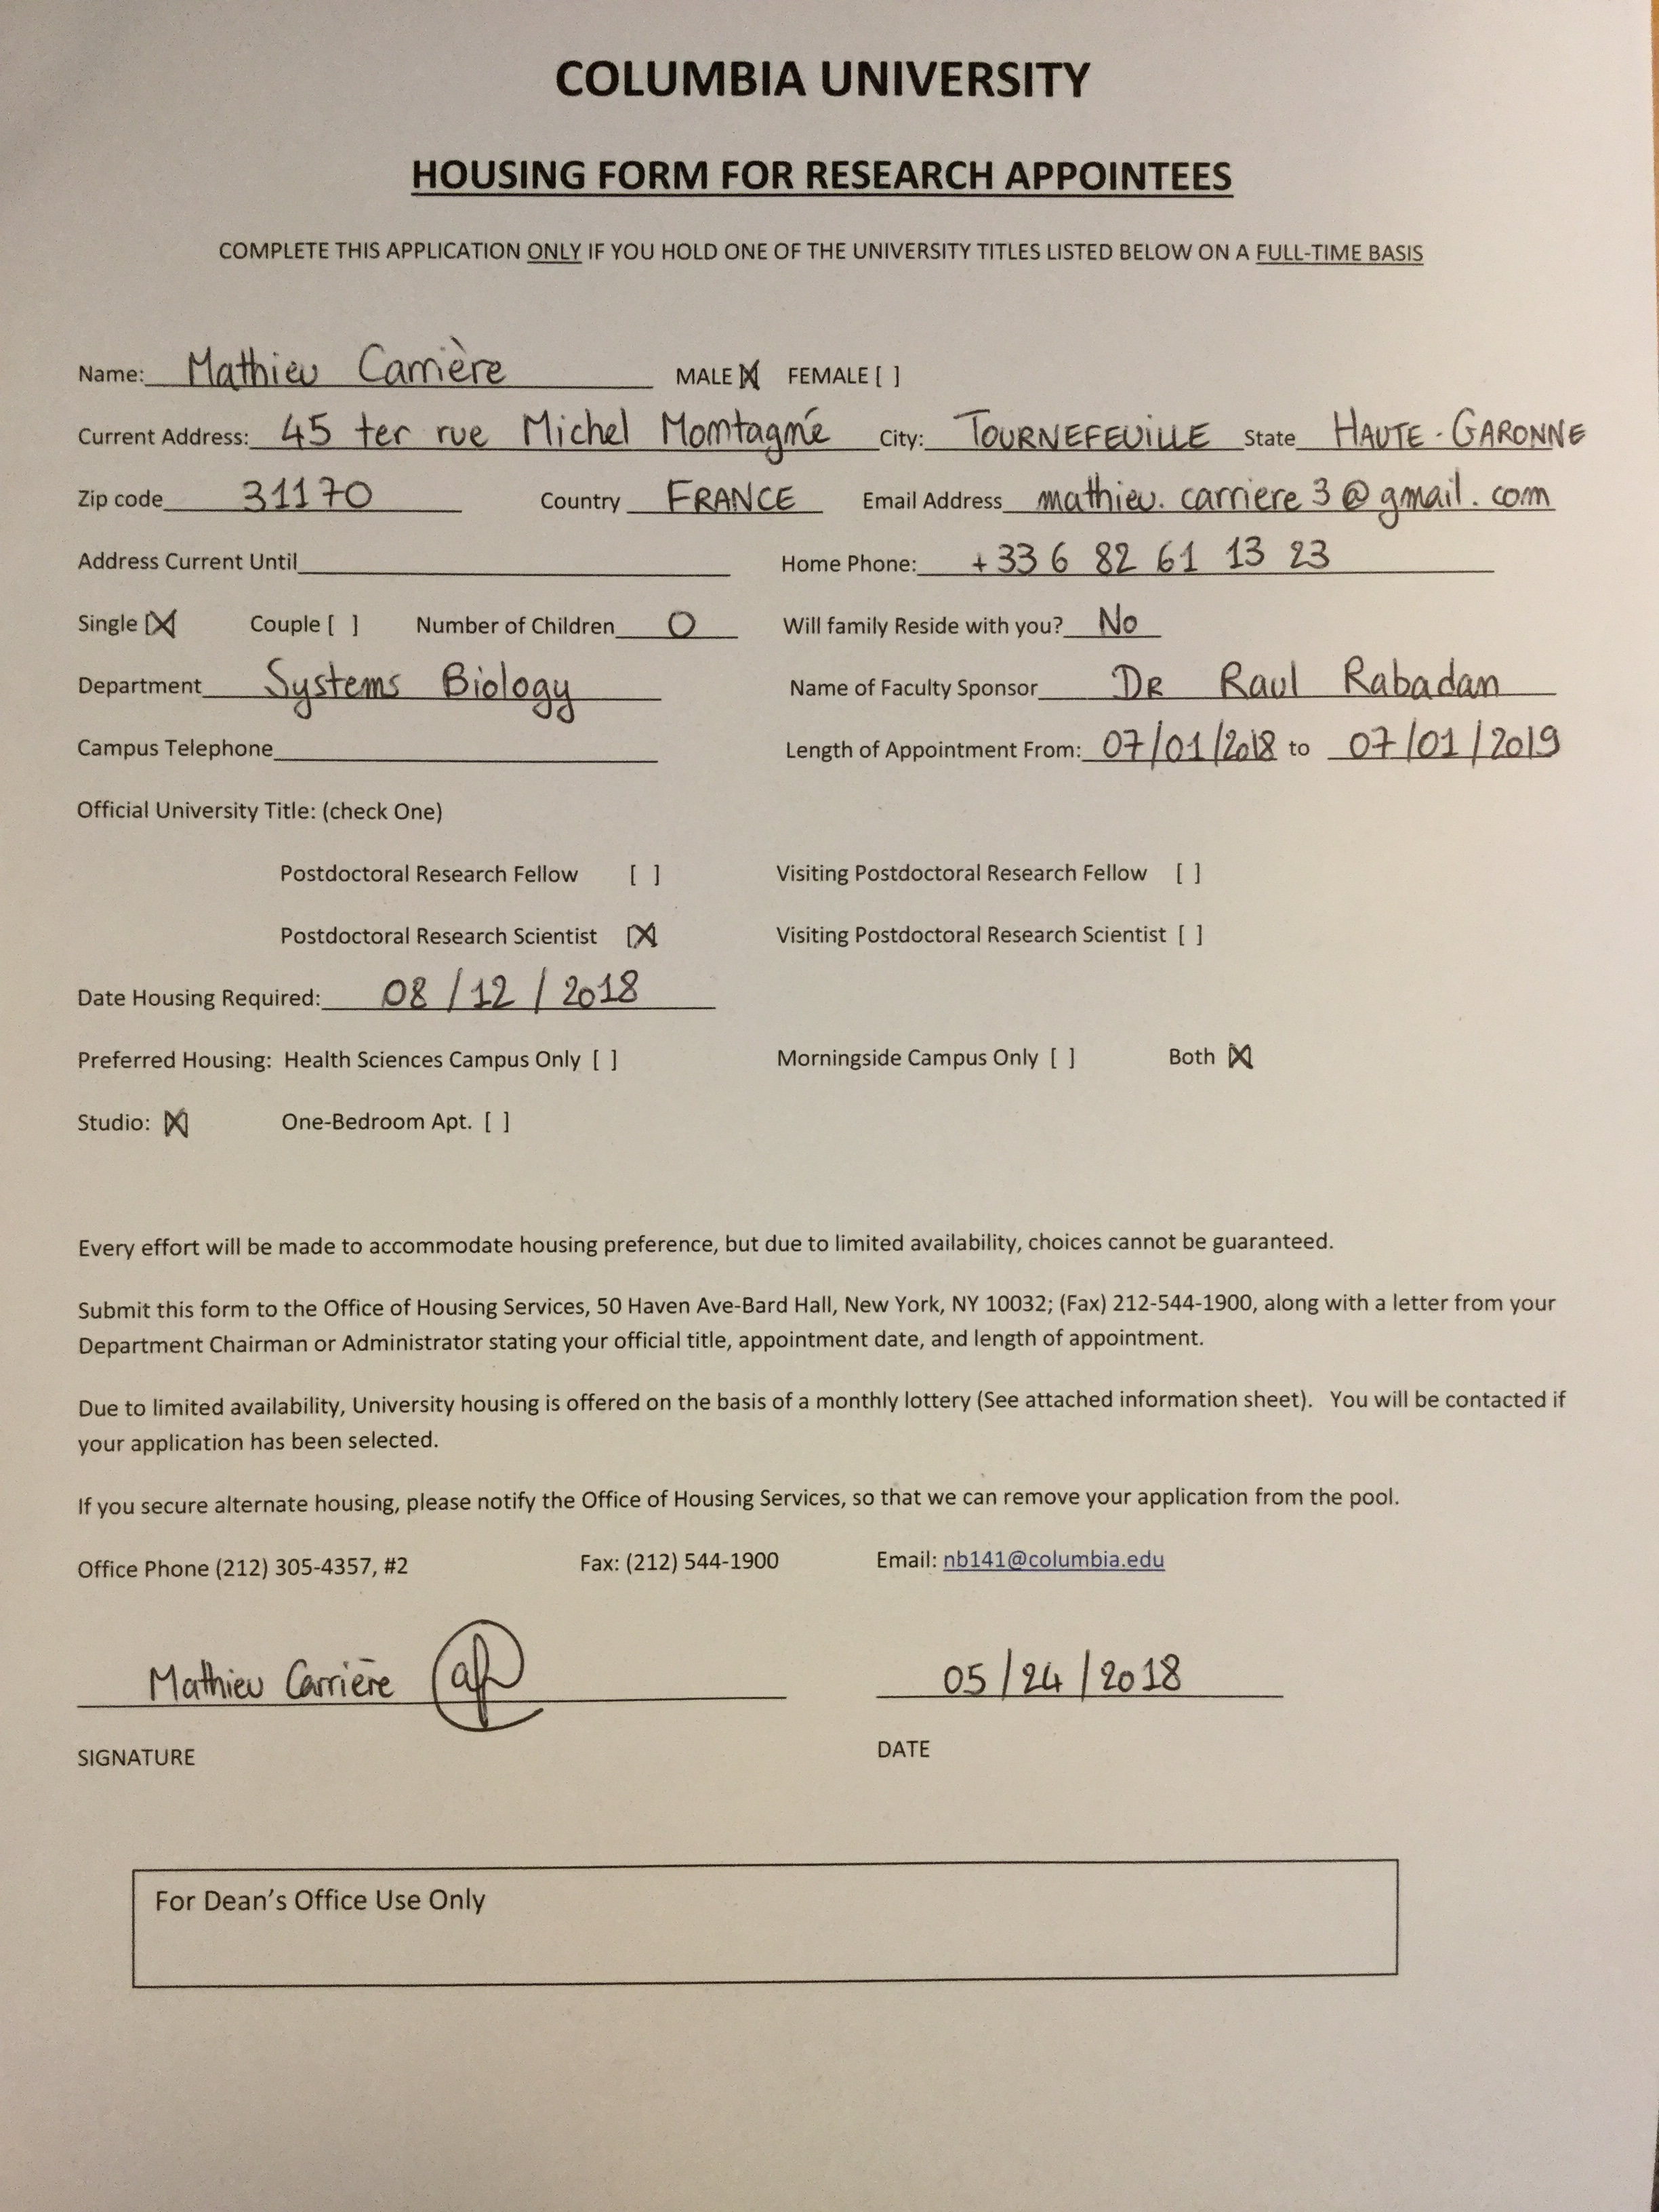 COLUMBIA UNIVERSITY
HOUSING FORM FOR RESEARCH APPOINTEES
COMPLETE THIS APPLICATION ONLY IF YOU HOLD ONE OF THE UNIVERSITY TITLES LISTED BELOW ON A FULL-TIME BASIS
Name: Mathieu Carrière MALE [X] FEMALE [ ]
Current Address: 45 ter rue Michel Montagné City: TOURNEFEUILLE State HAUTE-GARONNE
Zip code 31170 Country FRANCE Email Address mathieu.carriere3@gmail.com
Address Current Until Home Phone: +33 6 82 61 13 23
Single [X] Couple [ ] Number of Children 0 Will family Reside with you? No
Department Systems Biology Name of Faculty Sponsor DR Raul Rabadan
Campus Telephone Length of Appointment From: 07/01/2018 to 07/01/2019
Official University Title: (check One)
Postdoctoral Research Fellow [ ] Visiting Postdoctoral Research Fellow [ ]
Postdoctoral Research Scientist [X] Visiting Postdoctoral Research Scientist [ ]
Date Housing Required: 08/12/2018
Preferred Housing: Health Sciences Campus Only [ ] Morningside Campus Only [ ] Both [X]
Studio: [X] One-Bedroom Apt. [ ]
Every effort will be made to accommodate housing preference, but due to limited availability, choices cannot be guaranteed.
Submit this form to the Office of Housing Services, 50 Haven Ave-Bard Hall, New York, NY 10032; (Fax) 212-544-1900, along with a letter from your
Department Chairman or Administrator stating your official title, appointment date, and length of appointment.
Due to limited availability, University housing is offered on the basis of a monthly lottery (See attached information sheet). You will be contacted if
your application has been selected.
If you secure alternate housing, please notify the Office of Housing Services, so that we can remove your application from the pool.
Office Phone (212) 305-4357, #2 Fax: (212) 544-1900 Email: nb141@columbia.edu
Mathieu Carrière 05/24/2018
SIGNATURE DATE
For Dean's Office Use Only